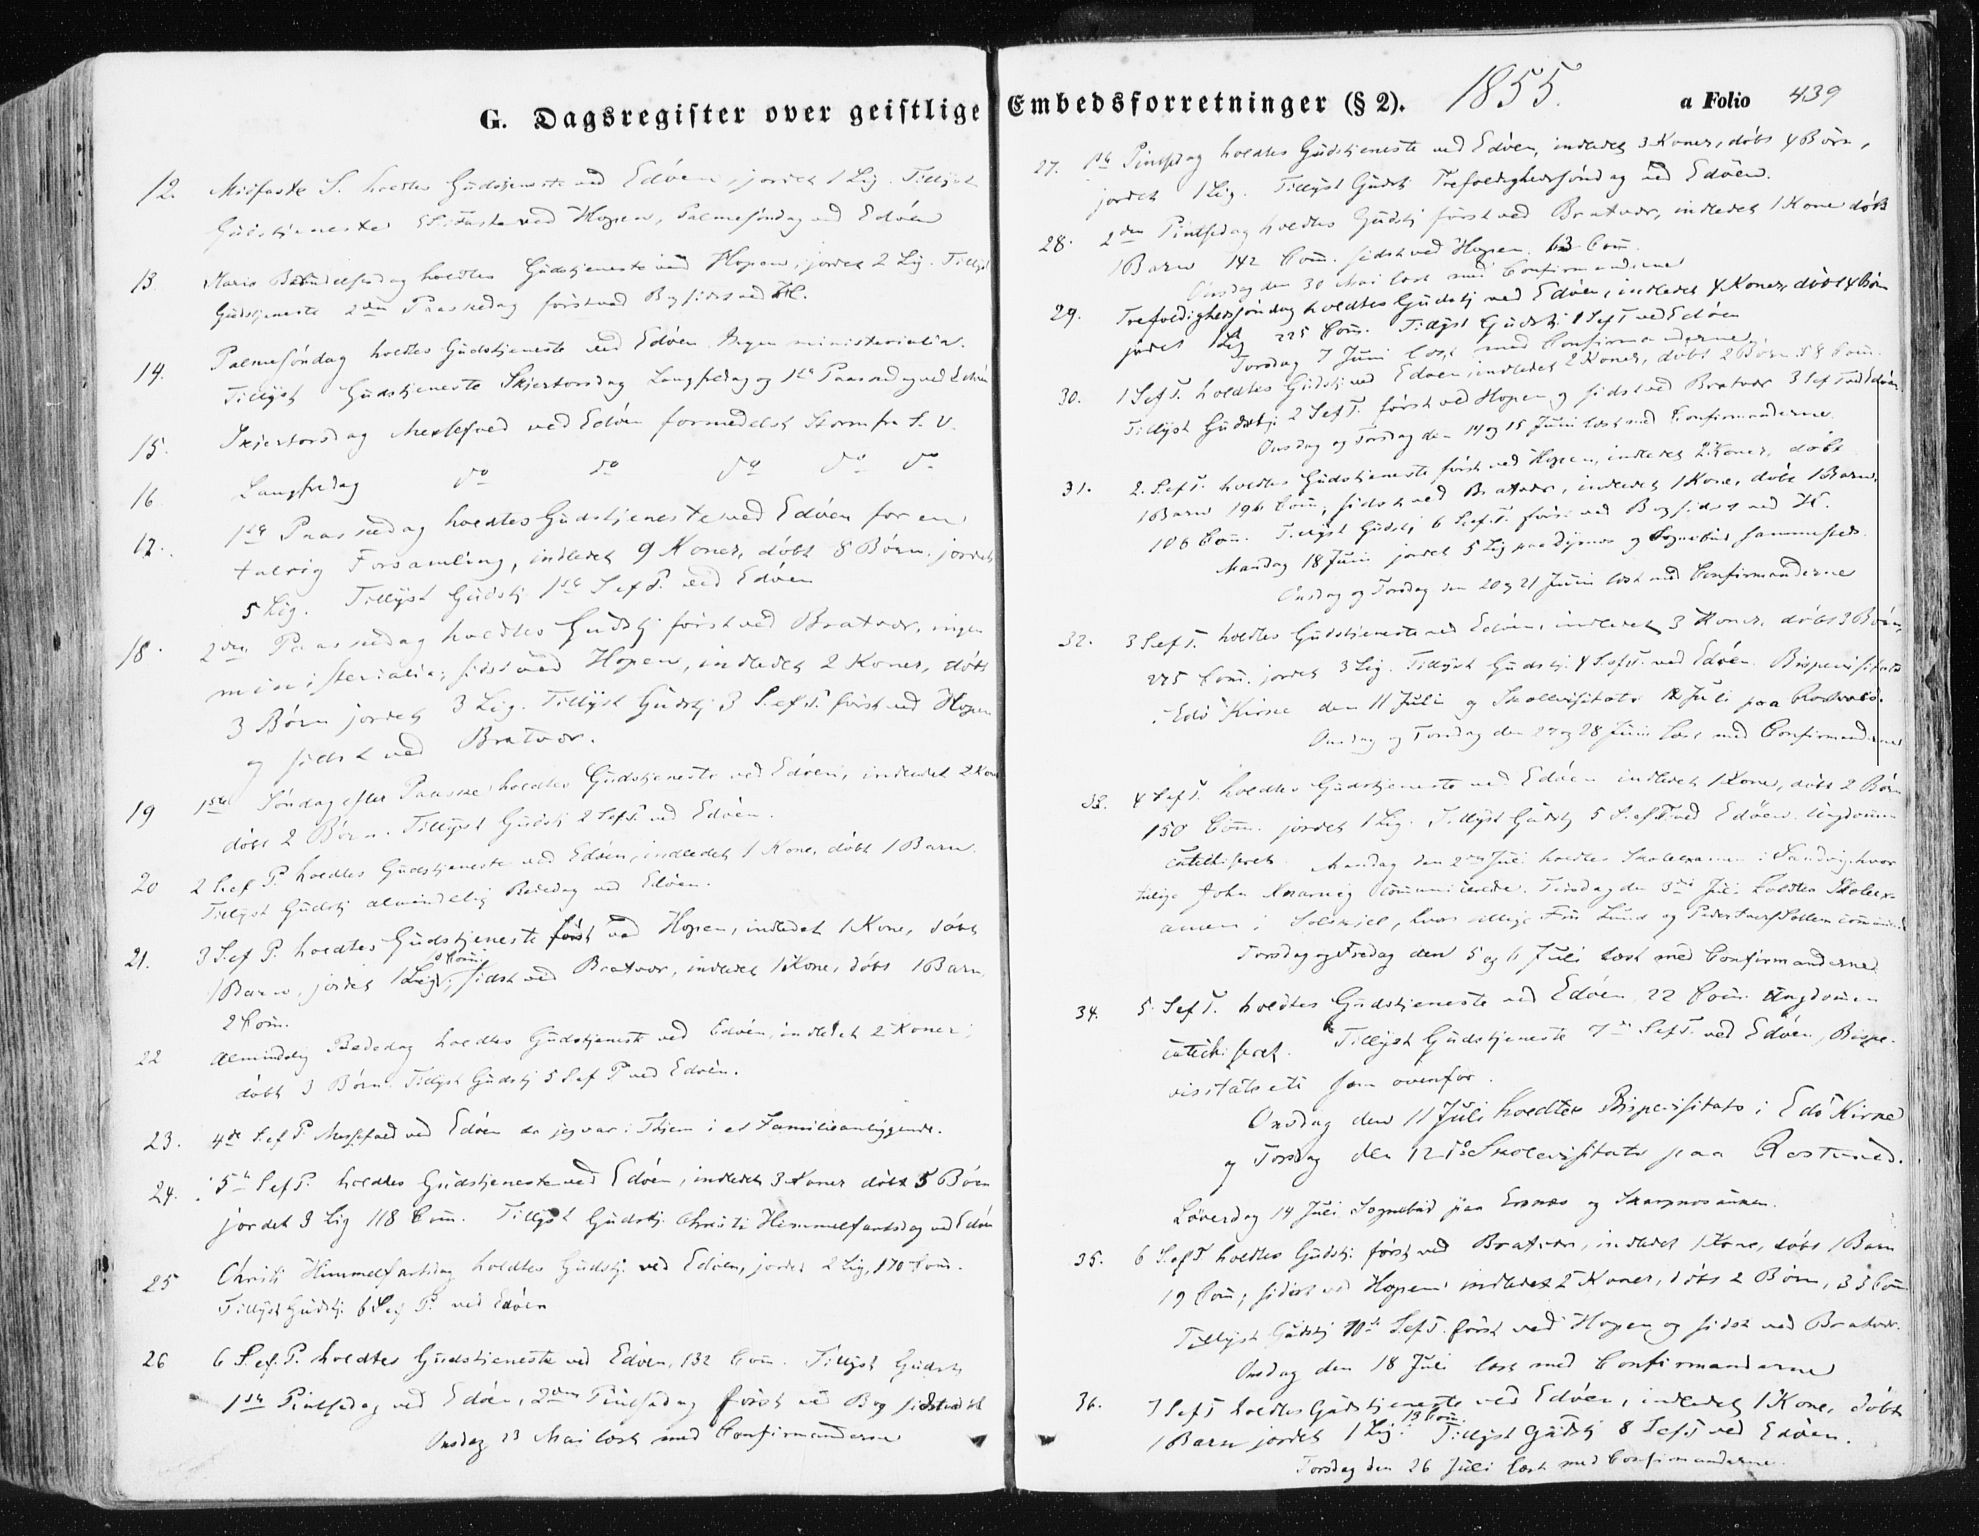 G. Dagsregister over geistlige Embedsforretninger (§ 2). 1855. a Folio 439
12. Midfaste S. holdtes Gudstjeneste ved Edöen, jordet 1 Lig. Tillyst
Gudstjeneste ved Hopen, Palmesöndag ved Edöen
13. Mariæ Bebudelsesdag holdtes Gudstjeneste ved Hopen, jordet 2 Lig. Tillyst
Gudstjeneste 2den Paaskedag först ved B og sidst ved H.
14. Palmesöndag holdtes Gudstjeneste ved Edöen. Ingen ministerialia.
Tillyst Gudstjeneste Skjertorsdag Langfredag og 1ste Paaskedag ved Edöen
15. Skjertorsdag Messefald ved Edöen formedelst Storm fra S. V.
16 Langfredag do do do do do
17. 1ste Paaskedag holdtes Gudstjeneste ved Edöen for en
talrig Forsamling, indledet 9 Koner, döbt 8 Börn, jordet
5 Lig. Tillyst Gudstj 1ste S. ef P. ved Edöen
18. 2den Paaskedag holdtes Gudstj först ved Bratvær, ingen
ministerialia; sidst ved Hopen, indledet 2 Koner, döbt
3 Börn jordet 3 Lig. Tillyst Gudstj 3 S. ef P. först ved Hopen
og sidst ved Bratvær.
19 1ste Söndag efter Paaske holdtes Gudstjeneste ved Edöen, indledet 2 Kon
döbt 2 Börn. Tillyst Gudstj 2 S ef P ved Edöen.
20 2 S. ef P. holdtes Gudstjeneste ved Edöen, indledet 1 Kone, döbt 1 Barn.
Tillyst Gudstj almindelig Bededag ved Edöen.
21. 3 S. ef P. holdtes Gudstjeneste först ved Hopen, indledet 1 Kone, döbt
1 Barn, jordet 1 Lig, sidst ved Bratvær, indledet 1 Kone, döbt 1 Barn,
2 Com.
22 Almindelig Bededag holdtes Gudstjeneste ved Edöen, indledet 2 Koner,
döbt 3 Börn. Tillyst Gudstj 5 S ef P ved Edöen.
23. 4de S. ef P. Messefald ved Edöen da jeg var i Thjem i et Familieanliggende.
24. 5te S ef P. holdtes Gudstjeneste ved Edöen, indledet 3 Koner döbt 5 Börn
jordet 3 Lig 118 Com. Tillyst Gudstj. Christi Himmelfartsdag ved Edöen
25 Christi Himmelfartsdag holdtes Gudstj. ved Edöen, jordet 2 Lig, 170 Com.
Tillyst Gudstj. 6 S ef P. ved Edöen
26 6 S. ef. P. holdtes Gudstjeneste ved Edöen, 132 Com. Tillyst Gudstj
1ste Pintsedag ved Edöen, 2den Pintsedag först ved B og sidst ved H
Onsdag 23 Mai læst med Confirmanderne
27. 1ste Pintsedag holdtes Gudstjeneste ved Edöen, indledet 3 Koner, döbt 4 Börn,
jordet 1 Lig. Tillyst Gudstj Trefoldighedssöndag ved Edöen.
28. 2den Pintsedag holdtes Gudstj först ved Bratvær, indledet 1 Kone döbt
1 Barn 142 Com. sidst ved Hopen. 13 Com.
Onsdag den 30 Mai læst med Confirmanderne
29. Trefoldighedssöndag holdtes Gudstj ved Edöen, indledet 4 Koner, döbt 4 Börn
jordet 1 Lig 225 Com. Tillyst Gudstj 1 S ef T ved Edöen
Torsdag 7 Juni læst med Confirmanderne
30. 1 S ef T. holdtes Gudstj ved Edöen, indledet 2 Koner, döbt 2 Börn 58 Com.
Tillyst Gudstj. 2 S ef T. först ved Hopen og sidst ved Bratvær 3 S ef T ved Edöen
Onsdag og Torsdag den 14 og 15 Juni læst med Confirmanderne.
31. 2. S. ef T. holdtes Gudstjeneste först ved Hopen, indledet 2 Koner, döbt
1 Barn 196 Com; sidst ved Bratvær, indledet 1 Kone, döbt 1 Barn,
106 Com. Tillyst Gudstj 6 S. ef T. först ved B og sidst ved H.
Mandag 18 Juni jordet 5 Lig paa og Sognebud sammesteds.
Onsdag og Torsdag den 20 og 21 Juni læst med Confirmanderne
32. 3 S. ef T. holdtes Gudstjeneste ved Edöen, indledet 3 Koner, döbt 3 Börn,
275 Com. jordet 3 Lig. Tillyst Gudstj. 4 S. ef T. ved Edöen. Bispevisitats
i Edö Kirke den 11 Juli og Skolevisitats 12 Juli paa
Onsdag og Torsdag den 27 og 28 Juni læst med Confirmanderne
33. 4 S ef T. holdtes Gudstjeneste ved Edöen indledet 1 Kone, döbt 2 Börn
150 Com. jordet 1 Lig. Tillyst Gudstj 5 S. ef T ved Edöen. Ungdommen
catechiseret. Mandag den 2den Juli holdtes Skoleexamen i Sandvig, hvor
tillige John communicerede. Tirsdag den 3die Juli holdtes Skoleex-
amen i Solskjel, hvor tillige
Torsdag og Fredag den 5 og 6 Juli læst med Confirmanderne.
34. 5 S ef T. holdtes Gudstjeneste ved Edöen 22 Com. Ungdommen
catechiseret. Tillyst Gudstjeneste 7de S ef T. ved Edöen, Bispe-
visitats etc som ovenfor.
Onsdag den 11 Juli holdtes Bispevisitats i Edö Kirke
og Torsdag den 12 do Skolevisitats paa
Löverdag 14 Juli Sognebud paa og
35. 6 S. ef T holdtes Gudstj. först ved Bratvær, indledet 1 Kone, döbt 1 Barn
19 Com; sidst ved Hopen indledet 2 Koner, döbt 2 Börn, 33 Com
Tillyst Gudstj 10de S ef T. först ved Hopen og sidst ved Bratvær.
Onsdag den 18 Juli læst med Confirmanderne
36. 7 S ef T holdtes Gudstjeneste ved Edöen, indledet 1 Kone, döbt
1 Barn jordet 1 Lig. 13 Com. Tillyst Gudstj 8 S ef T ved Edöen.
Torsdag den 26 Juli læst med Confirmanderne.